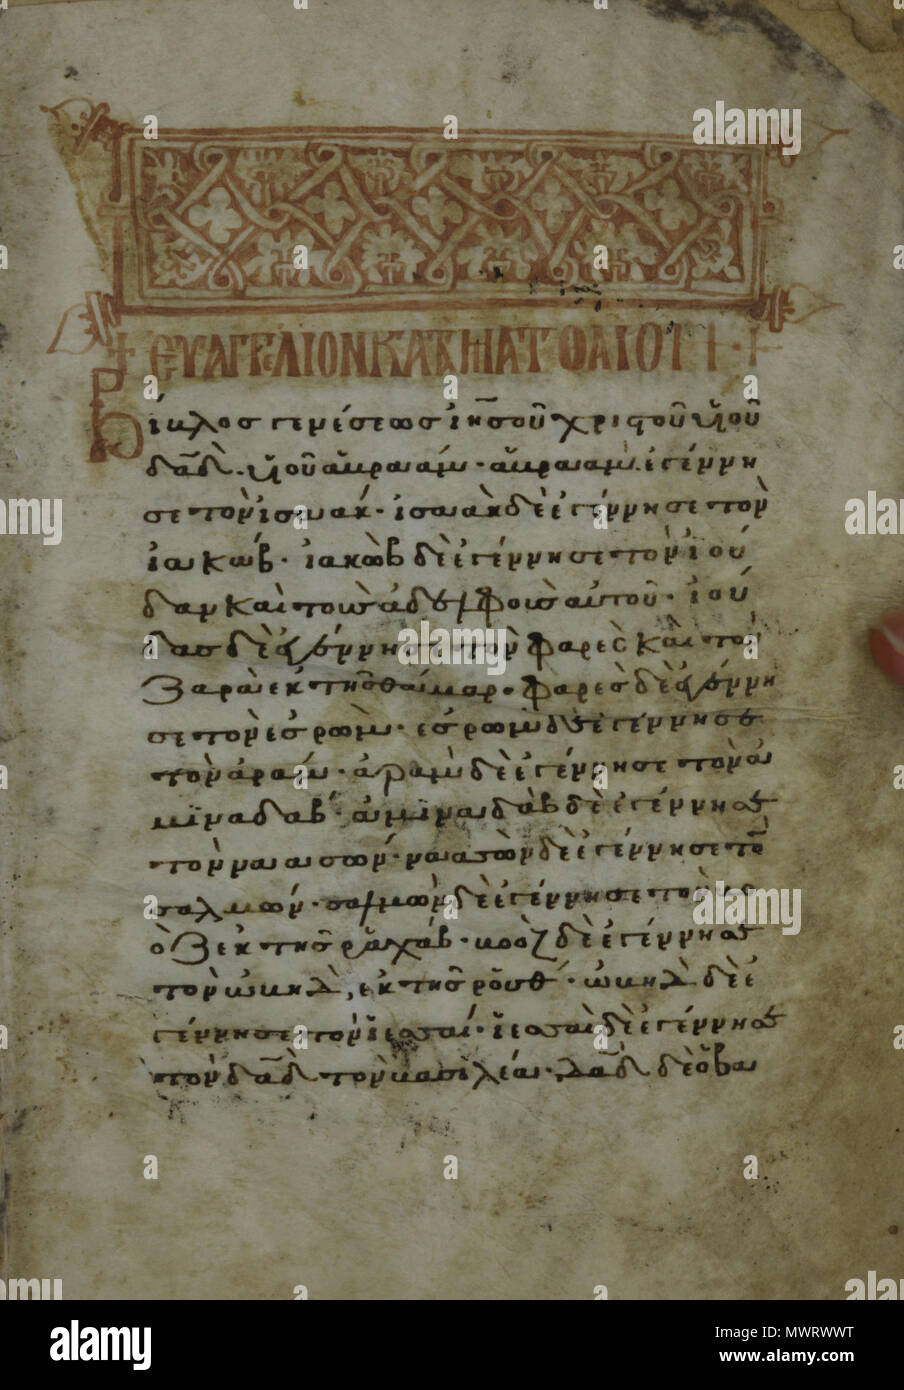 + ΕΥΑΓΓΕΛΙΟΝ ΚΑΤΑ ΜΑΤΘΑΙΟΝ +·+
Βίβλος γενέσεως ἰησοῦ χριστοῦ υἱοῦ
δαδ· υἱοῦ ἀβρααμ· ἀβρααμ ἐγέννη
σε τὸν ἰσαάκ· ἰσαὰκ δὲ ἐγέννησε τὸν
ἰακώβ· ἰακὼβ δὲ ἐγέννησε τὸν ἰού
δαν καὶ τοὺς ἀδελφοὺς αὐτοῦ· ἰού
δας δὲ ἐγέννησε τὸν φαρὲς καὶ τὸν
ζαρὰ ἐκ τῆς θάμαρ· φαρὲς δὲ ἐγέννη
σε τὸν ἐσρώμ· ἐσρὼμ δὲ ἐγέννησε
τὸν ἀράμ· ἀρὰμ δὲ ἐγέννησε τὸν ἀ
μιναδάβ· ἀμιναδὰβ δὲ ἐγέννησε
τὸν ναασών· ναασὼν δὲ ἐγέννησε τὸν
σαλμών· σαλμὼν δὲ ἐγέννησε τὸν βο
ὸζ ἐκ τῆς ῥαχάβ· βοὸζ δὲ ἐγέννησε
τὸν ὠβὴδ, ἐκ τῆς ῥούθ· ὠβὴδ δὲ ἐ
γέννησε τὸν ἰεσσαί· ἰεσσαὶ δὲ ἐγέννησε
τὸν δαδ τὸν βασιλέα· δαδ δὲ ὁ βα
alamy
Image ID: MWRWWT
www.alamy.com